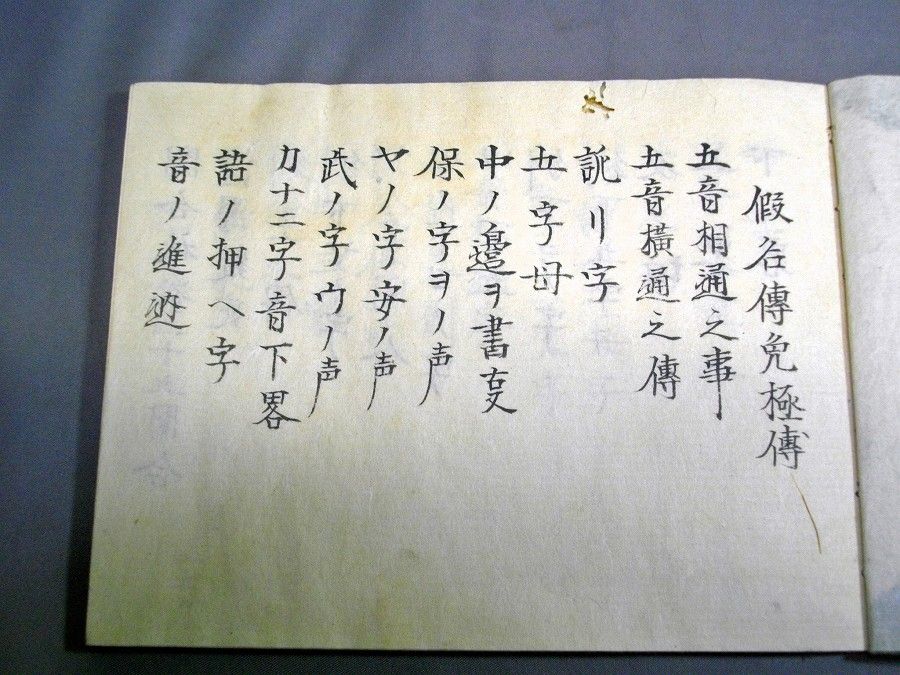 假名傳免極傳
五音相通之事
五音橫通之傳
訛リ字
五字母
中ノ邊ヲ書㕝
保ノ字ヲノ声
ヤノ字安ノ声
武ノ字ウノ声
カ十二字音下畧
語ノ押ヘ字
音ノ進